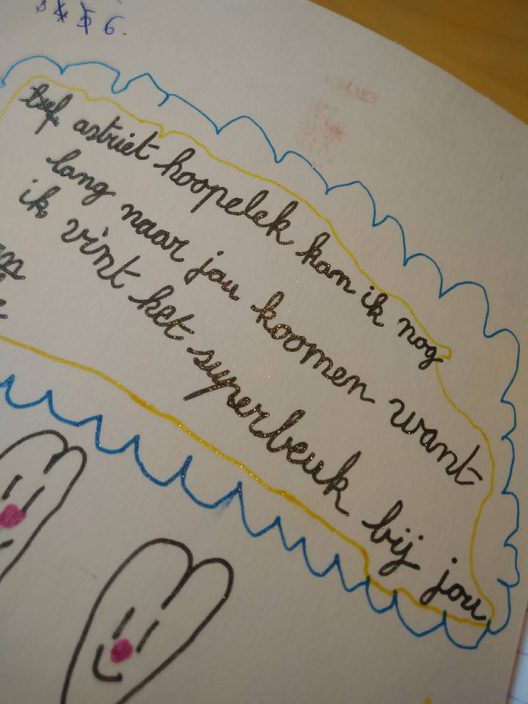 6.
juf astriet hoopelek kan ik nog
lang naar jou koomen want
ik vint het superbeuk bij jou